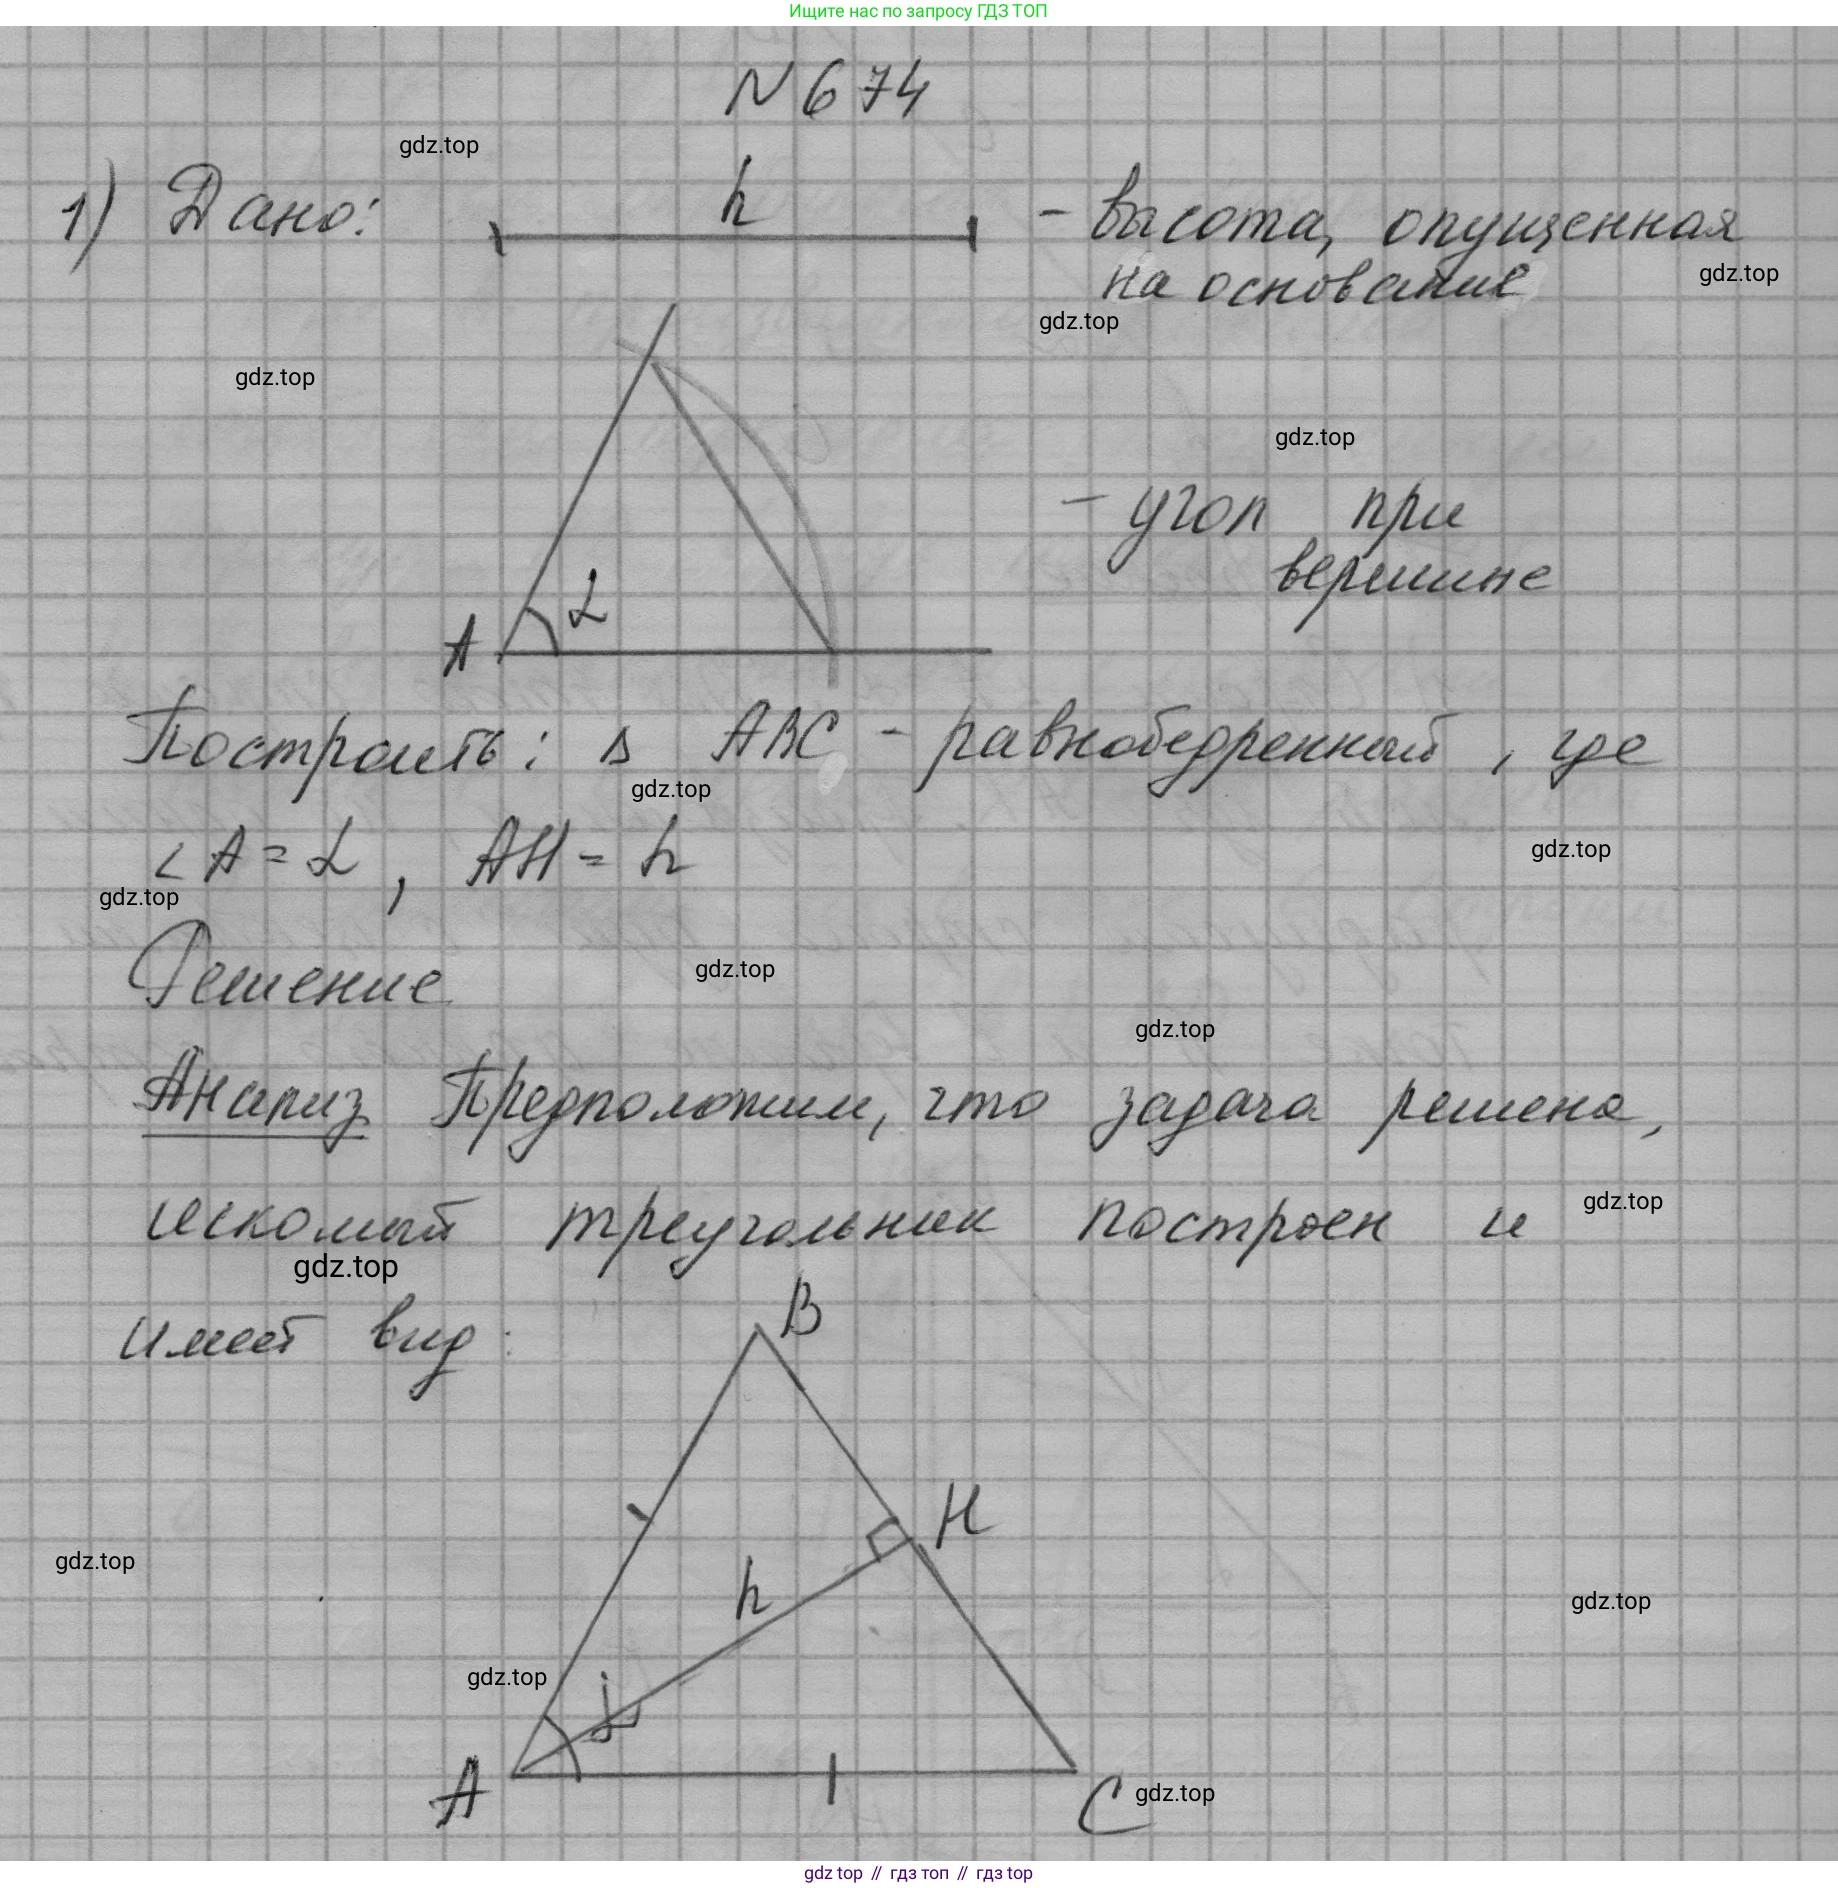 Ищите нас по запросу ГДЗ ТОП
N 674
gdz.top
1) Дано: h - высота, опущенная
на основание
gdz.top
gdz.top
gdz.top
gdz.top
- угол при
вершине
A α
Построить: Δ ABC - равнобедренный, где
gdz.top
∠A = α, AH = h
gdz.top
gdz.top
Решение
gdz.top
gdz.top
Анализ Предположим, что задача решена,
gdz.top
искомый треугольник построен и
gdz.top
имеет вид:
B
H
gdz.top
h
gdz.top
gdz.top
α
A C
gdz.top
gdz top // гдз топ // гдз top